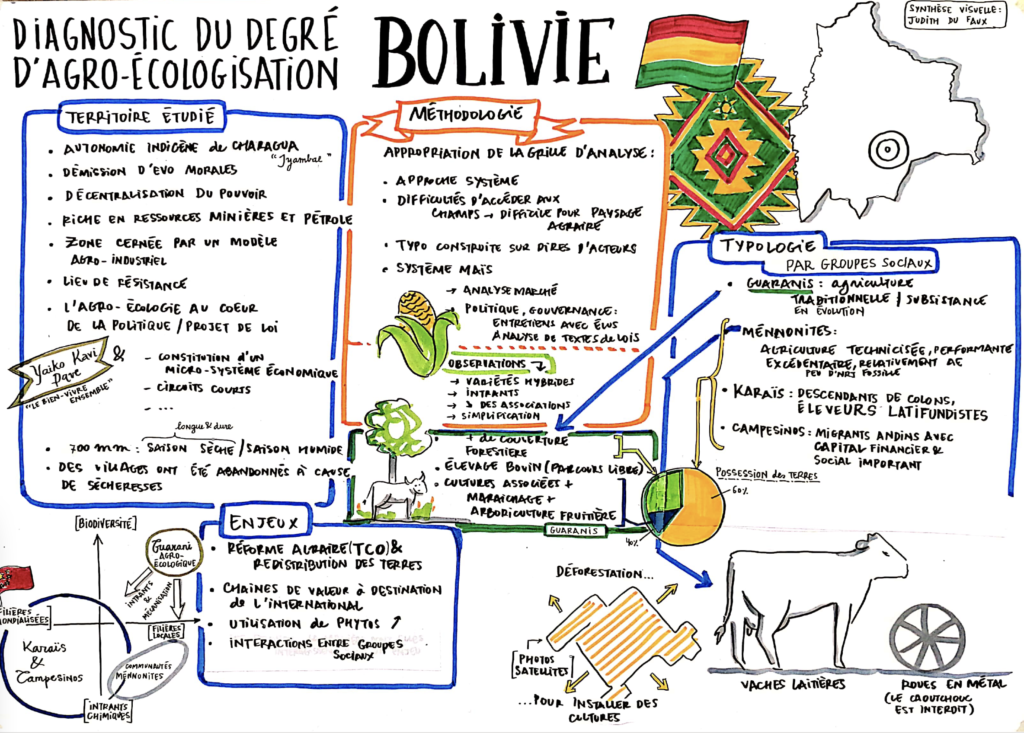 DIAGNOSTIC DU DEGRÉ
D'AGRO-ÉCOLOGISATION
BOLIVIE
SYNTHÈSE VISUELLE:
JUDITH DU FAUX
TERRITOIRE ÉTUDIÉ
• AUTONOMIE INDIGÈNE de CHARAGUA
"Iyambae"
• DÉMISSION D'EVO MORALES
• DÉCENTRALISATION DU POUVOIR
• RICHE EN RESSOURCES MINIÈRES ET PÉTROLE
• ZONE CERNÉE PAR UN MODÈLE
AGRO-INDUSTRIEL
• LIEU DE RÉSISTANCE
• L'AGRO-ÉCOLOGIE AU COEUR
DE LA POLITIQUE / PROJET DE LOI
Yaiko Kavi &
Pave
"LE BIEN-VIVRE
ENSEMBLE"
- CONSTITUTION D'UN
MICRO-SYSTÈME ÉCONOMIQUE
- CIRCUITS COURTS
- ...
longue & dure
• 700 mm: SAISON SÈCHE / SAISON HUMIDE
• DES VILLAGES ONT ÉTÉ ABANDONNÉS À CAUSE
DE SÉCHERESSES
MÉTHODOLOGIE
APPROPRIATION DE LA GRILLE D'ANALYSE:
• APPROCHE SYSTÈME
• DIFFICULTÉS D'ACCÉDER AUX
CHAMPS → DIFFICILE POUR PAYSAGE
AGRAIRE
• TYPO CONSTRUITE SUR DIRES D'ACTEURS
• SYSTÈME MAÏS
→ ANALYSE MARCHÉ
→ POLITIQUE, GOUVERNANCE:
ENTRETIENS AVEC ÉLUS
ANALYSE DE TEXTES de LOIS
OBSERVATIONS
→ VARIÉTÉS HYBRIDES
→ INTRANTS
→ ↘ DES ASSOCIATIONS
→ SIMPLIFICATION
• + de COUVERTURE
FORESTIÈRE
• ÉLEVAGE BOVIN (PARCOURS LIBRE)
• CULTURES ASSOCIÉES +
MARAÎCHAGE +
ARBORICULTURE FRUITIÈRE
GUARANIS
TYPOLOGIE
PAR GROUPES SOCIAUX
• GUARANIS: agriculture
TRADITIONNELLE / SUBSISTANCE
EN ÉVOLUTION
• MÉNNONITES:
AGRICULTURE TECHNICISÉE, PERFORMANTE
EXCÉDENTAIRE, RELATIVEMENT AE
PEU D'NRJ FOSSILE
• KARAÏS: DESCENDANTS DE COLONS,
ÉLEVEURS LATIFUNDISTES
• CAMPESINOS: MIGRANTS ANDINS AVEC
CAPITAL FINANCIER &
SOCIAL IMPORTANT
POSSESSION des TERRES
60%
40%
ENJEUX
• RÉFORME AGRAIRE (TCO) &
REDISTRIBUTION DES TERRES
• CHAÎNES DE VALEUR À DESTINATION
de L'INTERNATIONAL
• UTILISATION de PHYTOS ↗
• INTERACTIONS ENTRE GROUPES
SOCIAUX
[BIODIVERSITÉ]
Guarani
AGRO-
ÉCOLOGIQUE
INTRANTS &
MÉCANISATION
FILIÈRES
MONDIALISÉES]
[FILIÈRES
LOCALES]
Karaïs
&
Campesinos
COMMUNAUTÉS
MÉNNONITES
[INTRANTS
CHIMIQUES]
DÉFORESTATION...
[PHOTOS
SATELLITES]
...POUR INSTALLER DES
CULTURES
VACHES LAITIÈRES
ROUES EN MÉTAL
(LE CAOUTCHOUC
EST INTERDIT)